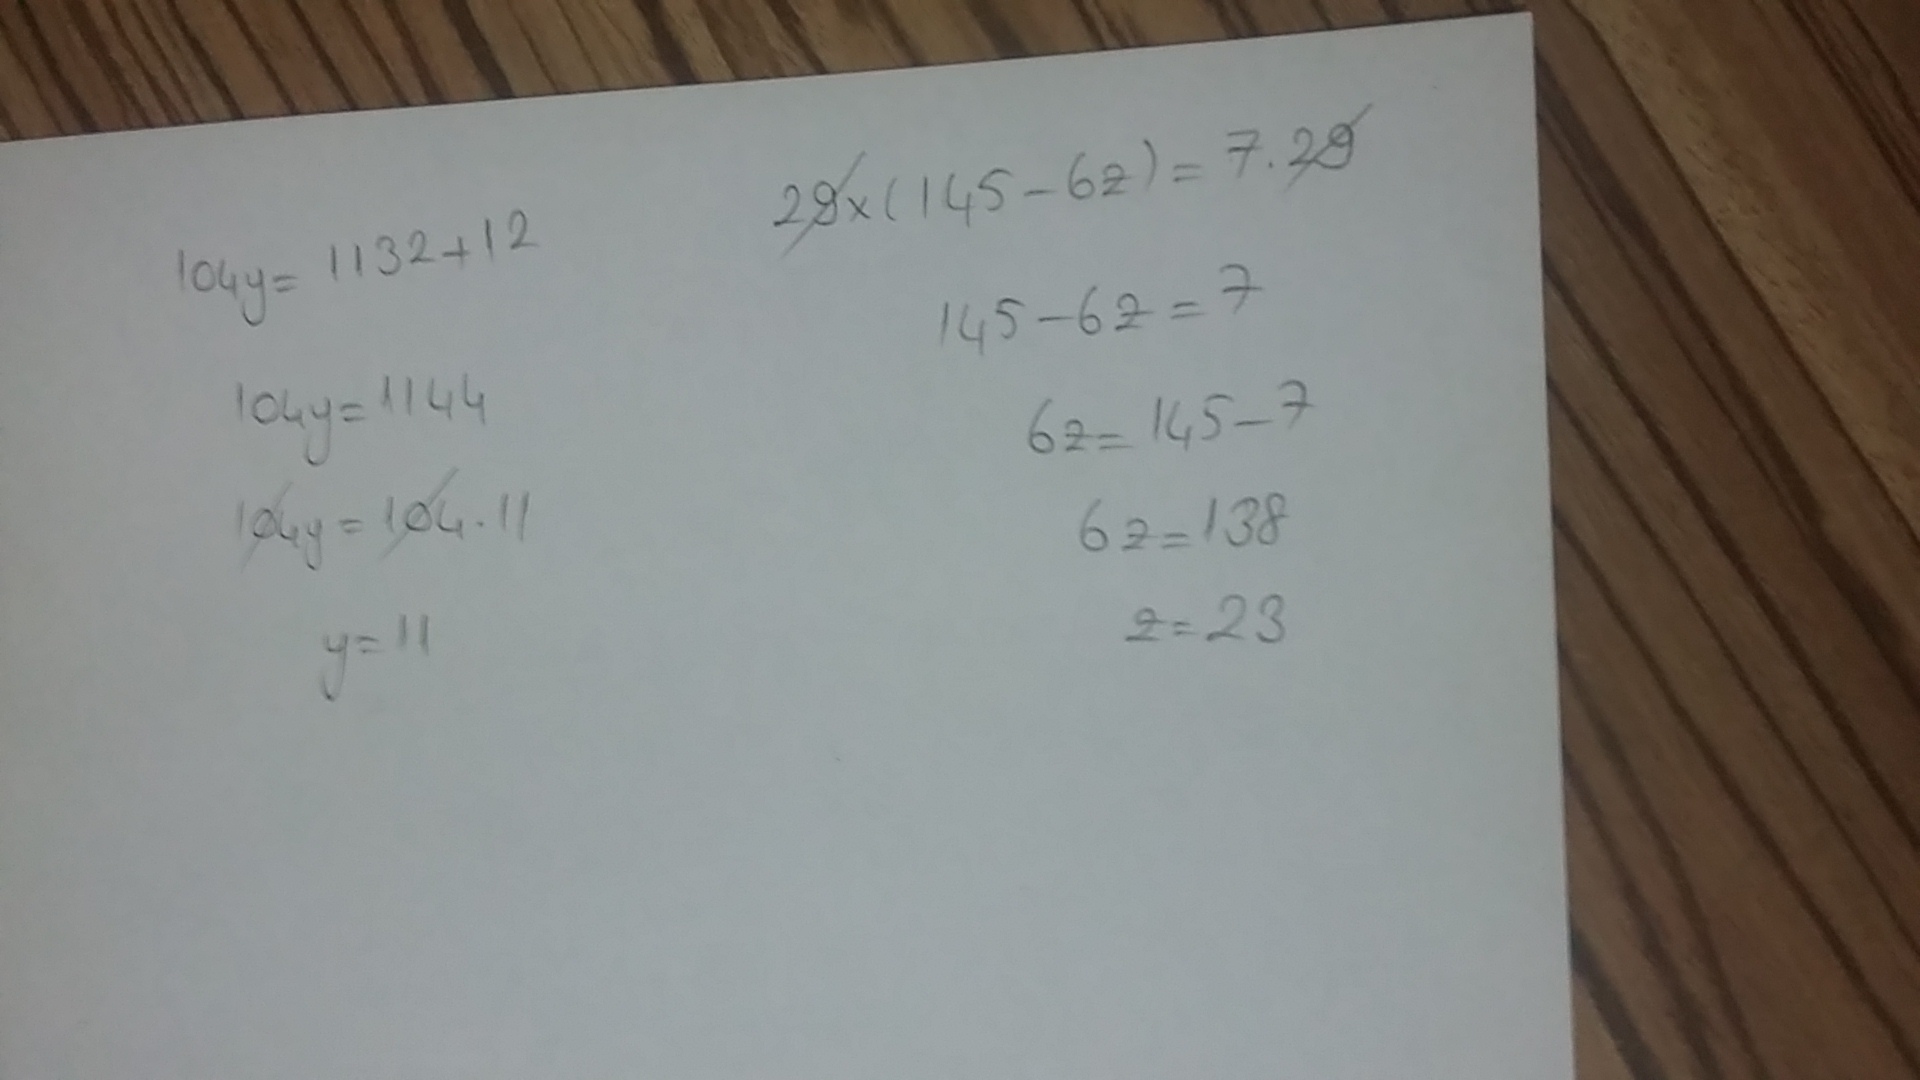 104y = 1132 + 12
104y = 1144
104y = 104 . 11
y = 11
29 x (145 - 6z) = 7 . 29
145 - 6z = 7
6z = 145 - 7
6z = 138
z = 23